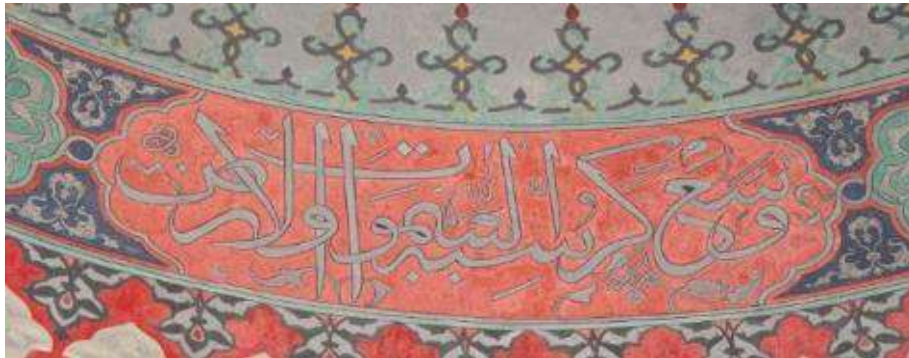 وسع كرسيه السموات والارض